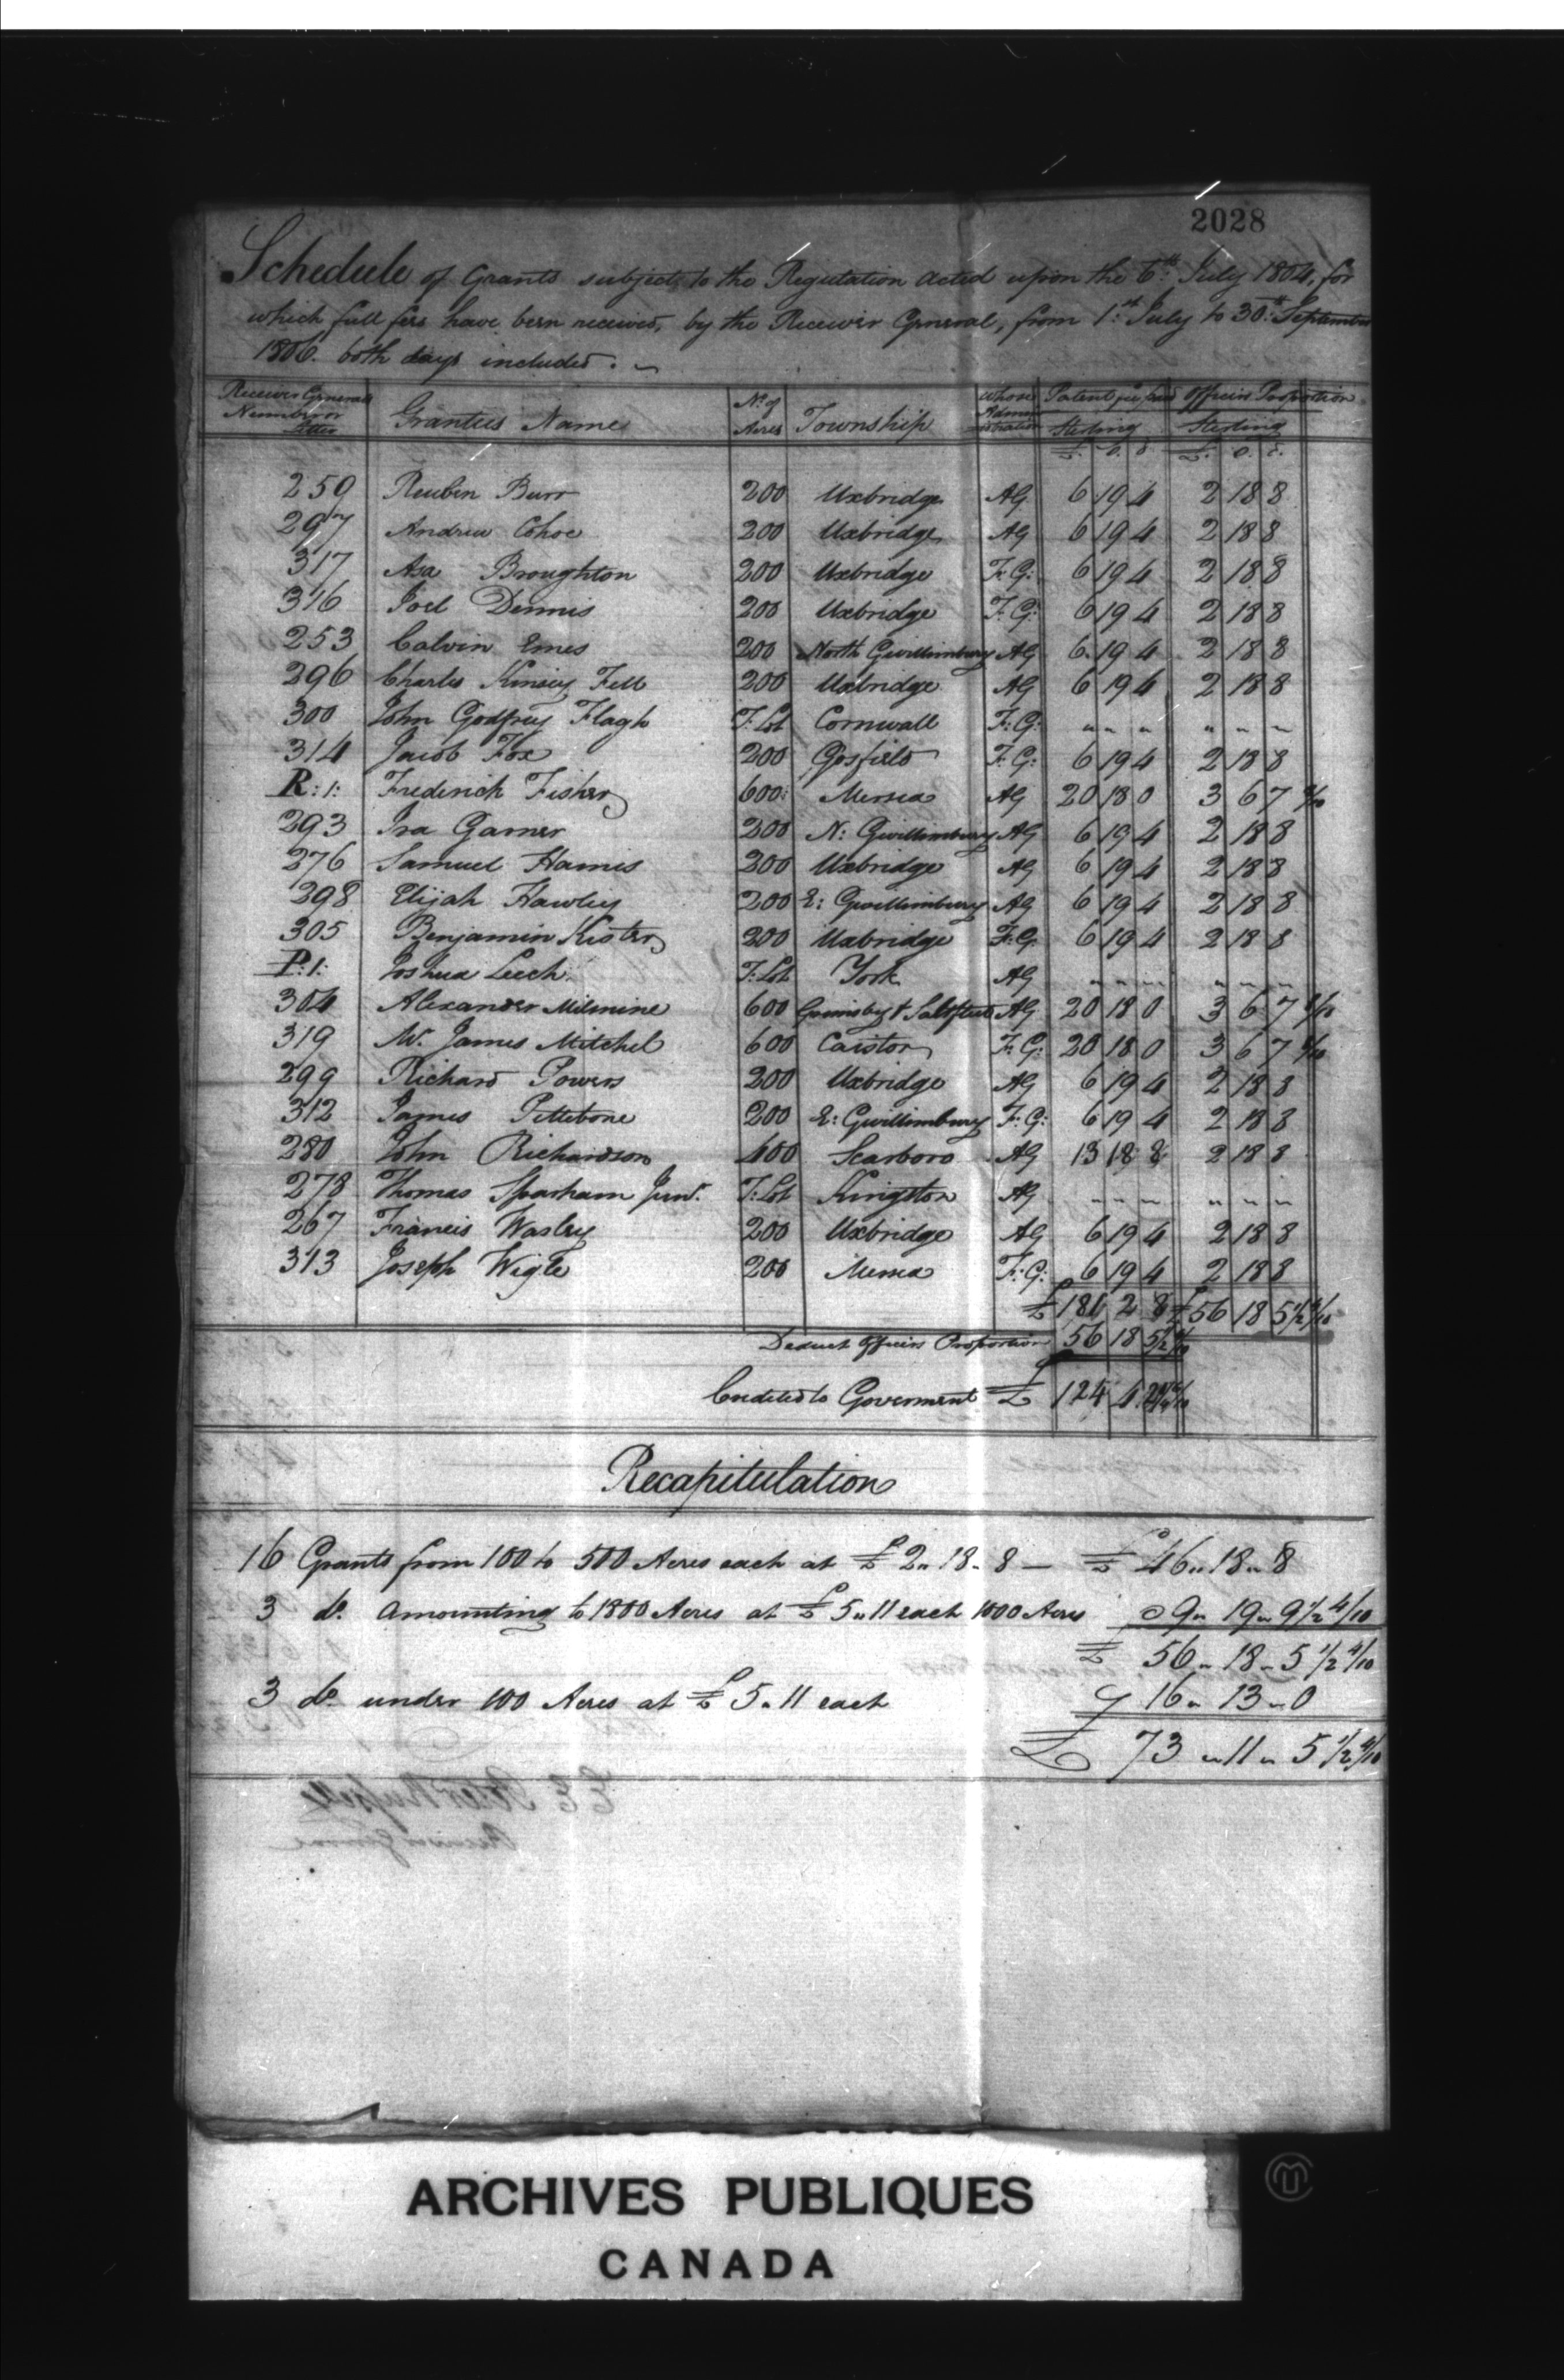 2028
Schedule of Grants subject to the Regulation acted upon the 6th July 1804, for
which full fees have been received, by the Receiver General, from 1st July to 30th September
1806. both days included.
Receiver General Number or Letter | Grantees Name | No. of Acres | Township | whose Adminis tration | Patent fee paid Sterling £. s. d. | Officers Proportion Sterling £. s. d.
259 Reuben Burr 200 Uxbridge AG 6 19 4 2 18 8
297 Andrew Cohoe 200 Uxbridge AG 6 19 4 2 18 8
317 Asa Broughton 200 Uxbridge F:G: 6 19 4 2 18 8
316 Joel Dennis 200 Uxbridge F:G: 6 19 4 2 18 8
253 Calvin Emes 200 North Gwillimbury AG 6 19 4 2 18 8
296 Charles Kinsey Fell 200 Uxbridge AG 6 19 4 2 18 8
300 John Godfrey Flagh T:Lot Cornwall F:G: " " " " " "
314 Jacob Fox 200 Gosfield F:G: 6 19 4 2 18 8
R:1: Frederick Fisher 600 Mersea AG 20 18 0 3 6 7 8/10
293 Ira Garner 200 N: Gwillimbury AG 6 19 4 2 18 8
276 Samuel Harris 200 Uxbridge AG 6 19 4 2 18 8
298 Elijah Hawley 200 E: Gwillimbury AG 6 19 4 2 18 8
305 Benjamin Kester 200 Uxbridge F:G: 6 19 4 2 18 8
P:1: Joshua Leech T:Lot York AG " " " " " "
304 Alexander Milmine 600 Grimsby & Saltfleet AG 20 18 0 3 6 7 8/10
319 Wm. James Mitchel 600 Caistor F:G: 20 18 0 3 6 7 8/10
299 Richard Powers 200 Uxbridge AG 6 19 4 2 18 8
312 James Pettebone 200 E: Gwillimbury F:G: 6 19 4 2 18 8
280 John Richardson 400 Scarboro AG 13 18 8 2 18 8
278 Thomas Sparham Junr. T:Lot Kingston AG " " " " " "
267 Francis Wasley 200 Uxbridge AG 6 19 4 2 18 8
313 Joseph Wigle 200 Mersea F:G: 6 19 4 2 18 8
£ 181 2 8 £ 56 18 5 1/2 4/10
Deduct Officers Proportion 56 18 5 1/2 4/10
Credited to Goverment £ 124 4 2
Recapitulation
16 Grants from 100 to 500 Acres each at £ 2 " 18 " 8 — £ 46 " 18 " 8
3 do. Amounting to 1800 Acres at £ 5 " 11 each 1000 Acres 9 " 19 " 9 1/2 4/10
£ 56 " 18 " 5 1/2 4/10
3 do. under 100 Acres at £ 5 " 11 each 16 " 13 " 0
£ 73 " 11 " 5 1/2 4/10
ARCHIVES PUBLIQUES
CANADA